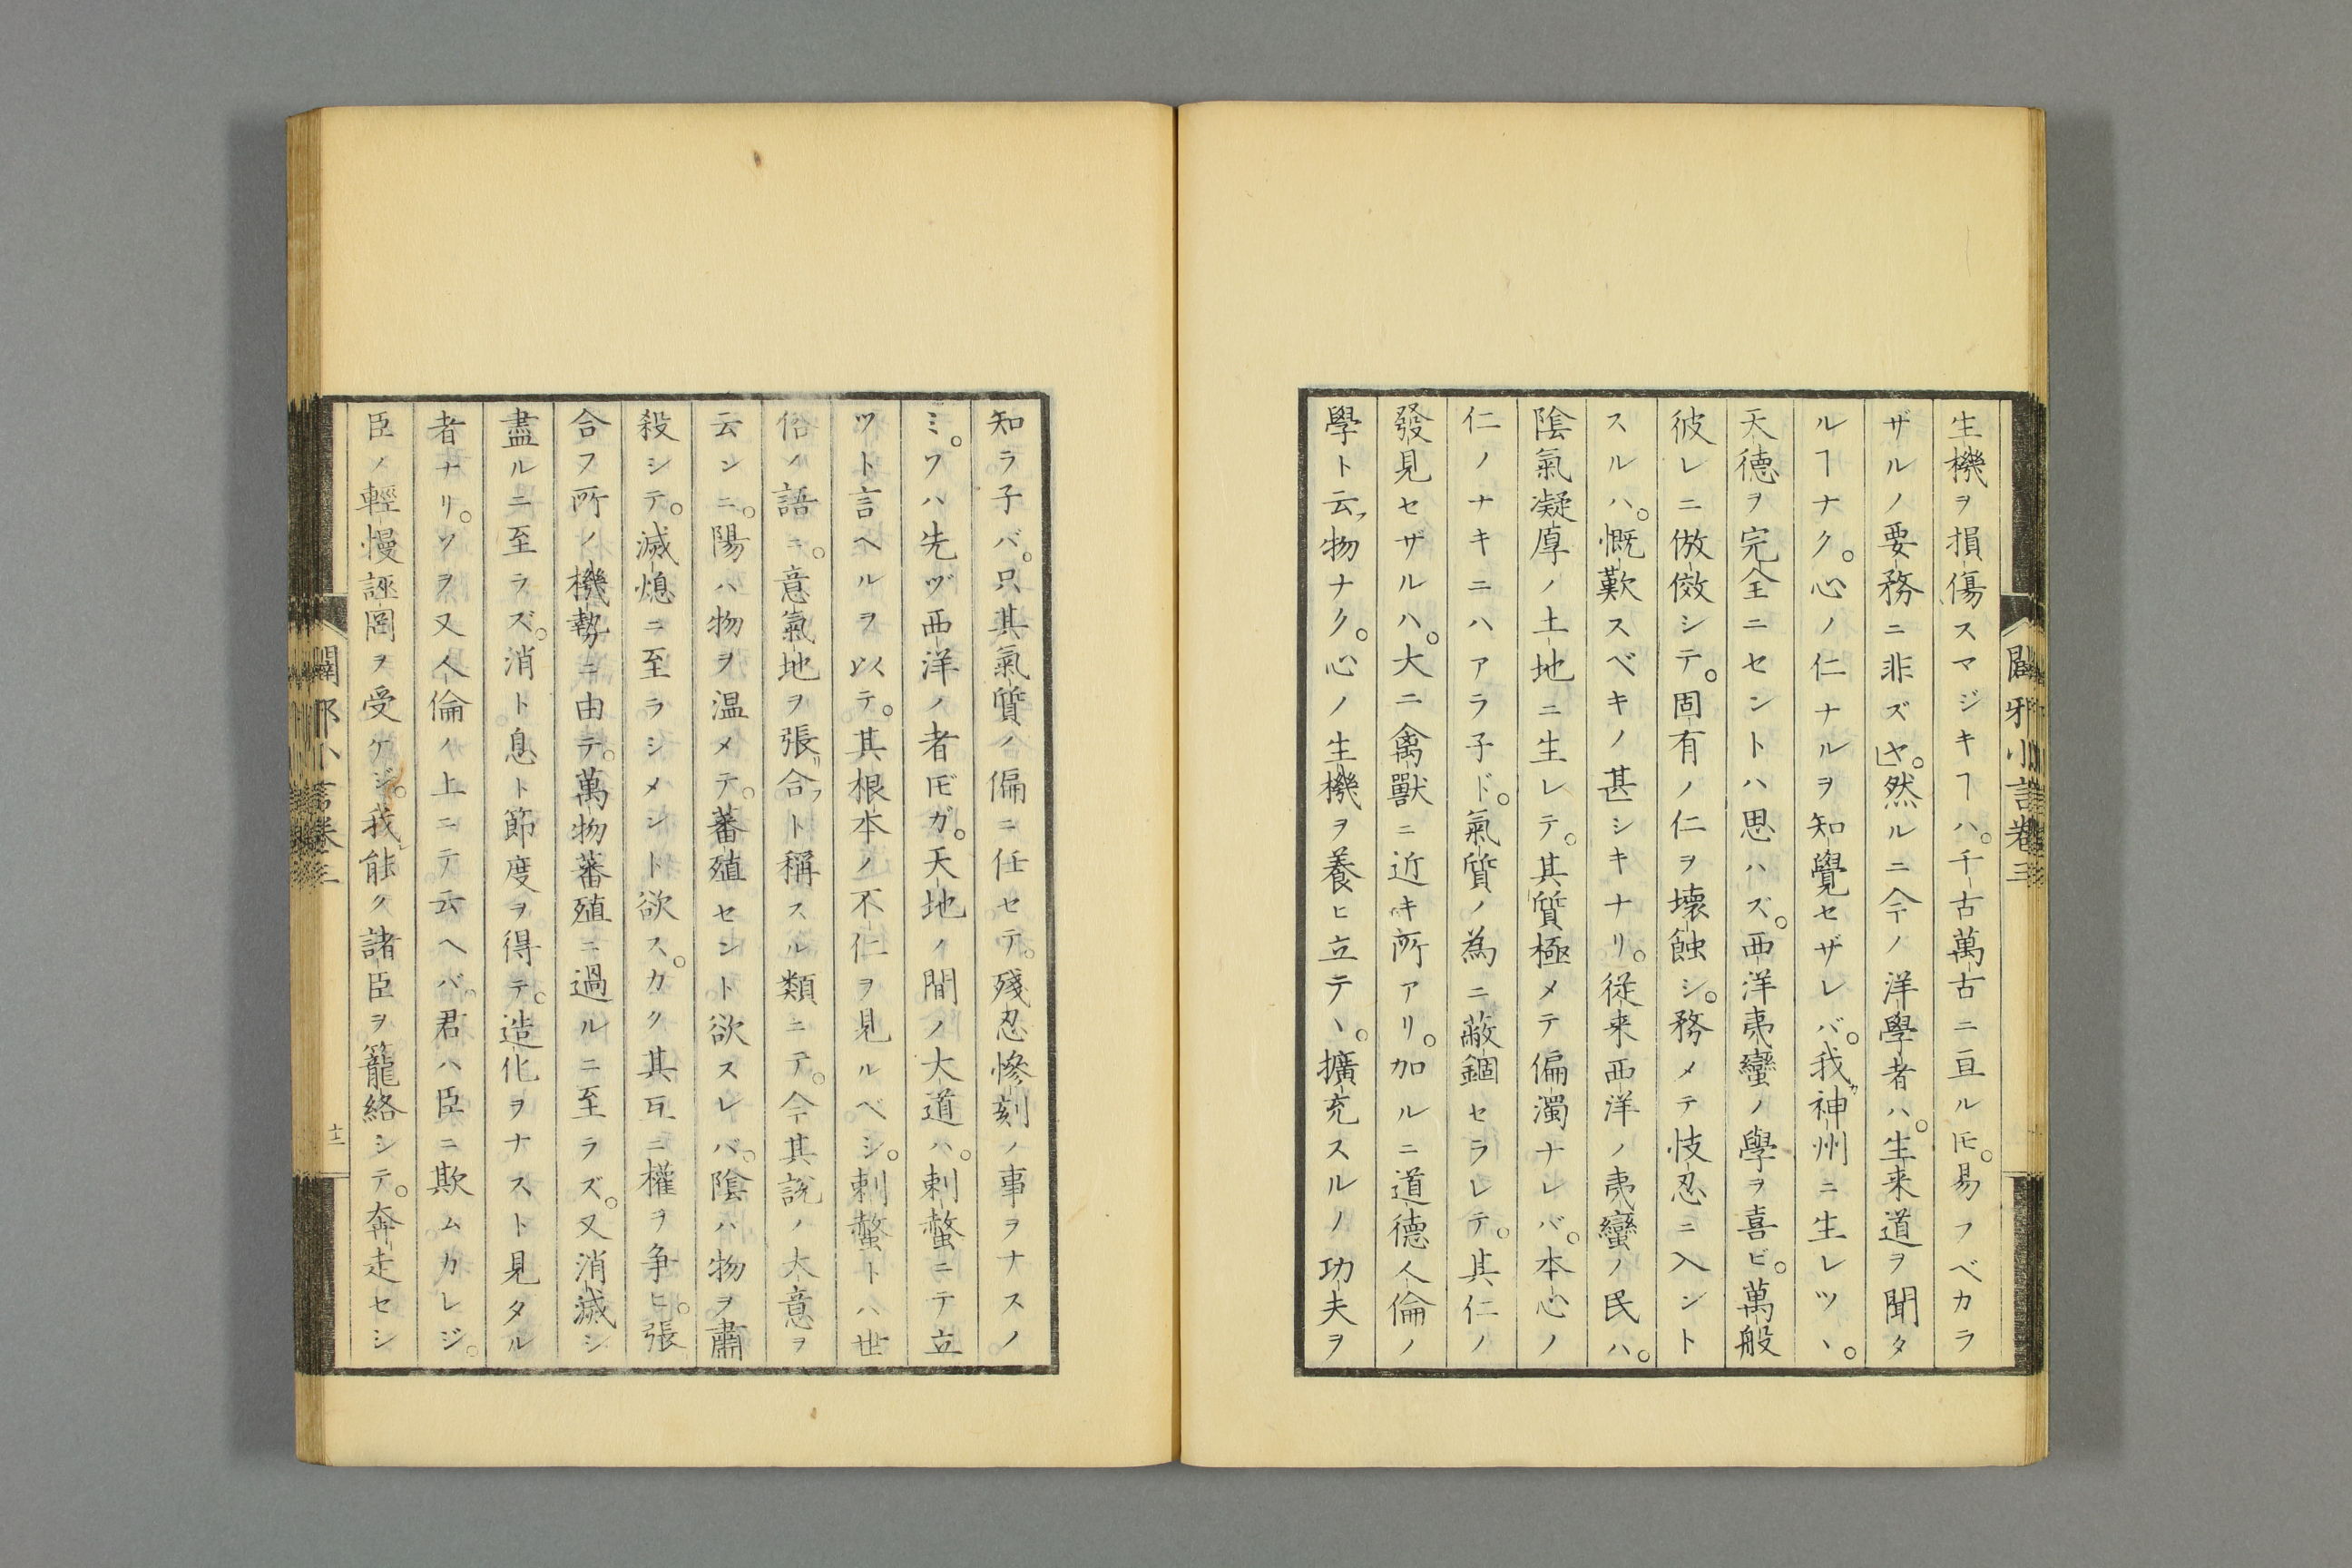 闢邪小言卷三
生機ヲ損傷スマジキヿハ。千古萬古ニ亘ルㇳモ。易フベカラ
ザルノ要務ニ非ズヤ。然ルニ今ノ洋學者ハ。生来道ヲ聞タ
ルヿナク。心ノ仁ナルヲ知覺セザレバ。我ガ神州ニ生レツヽ。
天德ヲ完全ニセントハ思ハズ。西洋夷蠻ノ學ヲ喜ビ。萬般
彼レニ倣傚シテ。固有ノ仁ヲ壊蝕シ。務メテ忮忍ニ入ント
スルハ。慨歎スベキノ甚シキナリ。従来西洋ノ夷蠻ノ民ハ。
陰氣凝厚ノ土地ニ生レテ。其質極メテ偏濁ナレバ。本心ノ
仁ノナキニハアラ子ド。氣質ノ為ニ蔽錮セラレテ。其仁ノ
發見セザルハ。大ニ禽獸ニ近キ所アリ。加ルニ道德人倫ノ
學ト云フ物ナク。心ノ生機ヲ養ヒ立テヽ。擴充スルノ功夫ヲ
知ラ子バ。只其氣質ノ偏ニ任セテ。殘忍慘刻ノ事ヲナスノ
ミ。ワハ先ヅ西洋ノ者ㇳモガ。天地ノ間ノ大道ハ。剌螫ニテ立
ツト言ヘルヲ以テ。其根本ノ不仁ヲ見ルベシ。剌螫トハ世
俗ノ語ニ。意氣地ヲ張リ合フト稱スル類ニテ。今其説ノ大意ヲ
云ンニ。陽ハ物ヲ温メテ。蕃殖セント欲スレバ。陰ハ物ヲ肅
殺シテ。滅熄ニ至ラシメント欲ス。カク其互ニ權ヲ争ヒ。張
合フ所ノ機勢ニ由テ。萬物蕃殖ニ過ルニ至ラズ。又消滅シ
盡ルニ至ラズ。消ト息ト節度ヲ得テ。造化ヲナスト見タル
者ナリ。ソヲ又人倫ノ上ニテ云ヘバ。君ハ臣ニ欺ムカレジ。
臣ノ輕慢誣罔ヲ受ケジ。我レ能ク諸臣ヲ籠絡シテ。奔走セシ
闢邪小言卷三
十二